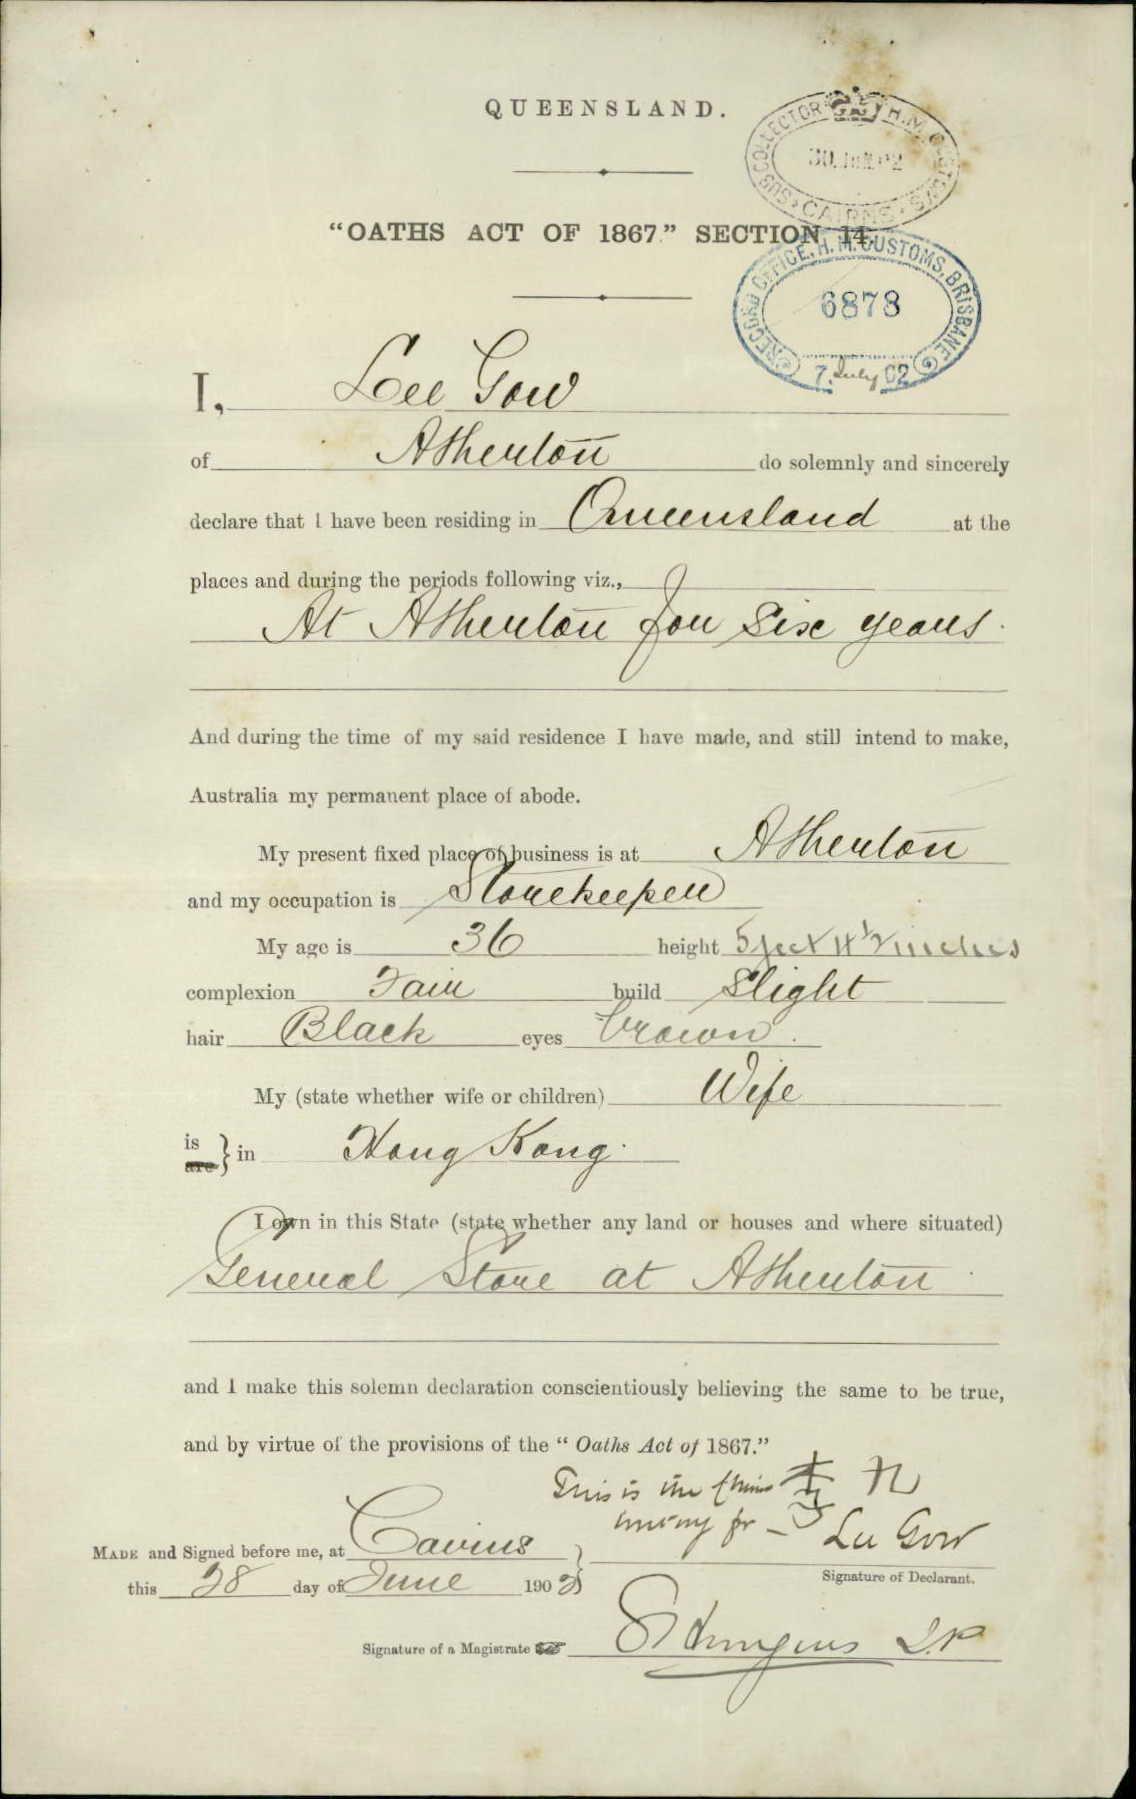 QUEENSLAND.
SUB COLLECTOR H.M. CUSTOMS
CAIRNS
"OATHS ACT OF 1867." SECTION 14.
RECORD OFFICE, H. M. CUSTOMS, BRISBANE
6878
7 July 02
I, Lee Gow
of Atherton do solemnly and sincerely
declare that I have been residing in Queensland at the
places and during the periods following viz.,
At Atherton for Six years.
And during the time of my said residence I have made, and still intend to make,
Australia my permanent place of abode.
My present fixed place of business is at Atherton
and my occupation is Storekeeper
My age is 36 height 5 feet 4 1/2 inches
complexion Fair build Slight
hair Black eyes brown.
My (state whether wife or children) Wife
is
are } in Hong Kong.
I own in this State (state whether any land or houses and where situated)
General Store at Atherton.
and I make this solemn declaration conscientiously believing the same to be true,
and by virtue of the provisions of the "Oaths Act of 1867."
This is the
for Lee Gow
MADE and Signed before me, at Cairns
Signature of Declarant.
this 28 day of June 1902
Signature of a Magistrate J.P